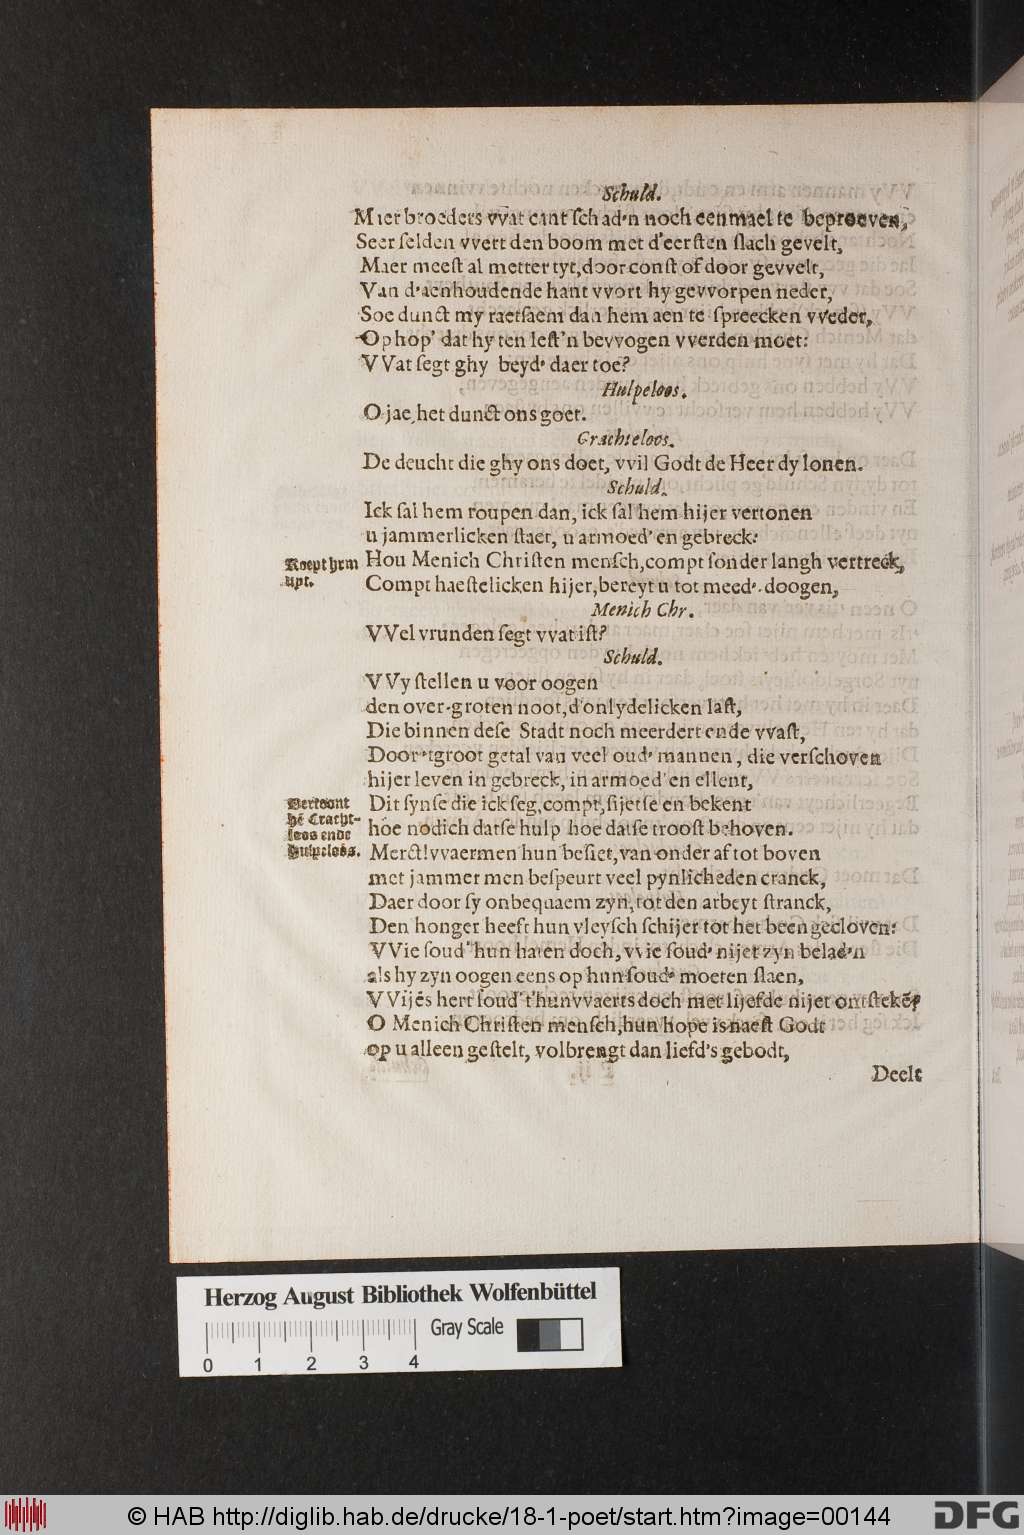 Schuld.
Maer broeders vvat cant schad'n noch eenmael te beproeven,
Seer selden vvert den boom met d'eersten slach gevelt,
Maer meest al metter tyt, door const of door gevvelt,
Van d'aenhoudende hant vvort hy gevvorpen neder,
Soe dunct my raetsaem dan hem aen te spreecken vveder,
Op hop' dat hy ten lest'n bevvogen vverden moet:
VVat segt ghy beyd' daer toe?
Hulpeloos.
O jae, het dunct ons goet.
Crachteloos.
De deucht die ghy ons doet, vvil Godt de Heer dy lonen.
Schuld.
Ick sal hem roupen dan, ick sal hem hijer vertonen
u jammerlicken staet, u armoed' en gebreck:
Roept hem
upt.
Hou Menich Christen mensch, compt sonder langh vertreck,
Compt haestelicken hijer, bereyt u tot meed'-doogen,
Menich Chr.
VVel vrunden segt vvat ist?
Schuld.
VVy stellen u voor oogen
den over-groten noot, d'onlydelicken last,
Die binnen dese Stadt noch meerdert ende vvast,
Door 'tgroot getal van veel oud' mannen, die verschoven
hijer leven in gebreck, in armoed' en ellent,
Vertoont
hē Cracht-
loos ende
Hulpeloos.
Dit synse die ick seg, compt, sijetse en bekent
hoe nodich datse hulp hoe datse troost behoven.
Merct! vvaermen hun besiet, van onder af tot boven
met jammer men bespeurt veel pynlicheden cranck,
Daer door sy onbequaem zyn, tot den arbeyt stranck,
Den honger heeft hun vleysch schijer tot het been gecloven:
VVie soud' hun haten doch, vvie soud' nijet zyn belad'n
als hy zyn oogen eens op hun soud' moeten slaen,
VVijēs hert soud' t'hunvvaerts doch met lijefde nijet ontstekē?
O Menich Christen mensch, hun hope is naest Godt
op u alleen gestelt, volbrengt dan liefd's gebodt,
Deelt
Herzog August Bibliothek Wolfenbüttel
Gray Scale
0 1 2 3 4
© HAB http://diglib.hab.de/drucke/18-1-poet/start.htm?image=00144
DFG